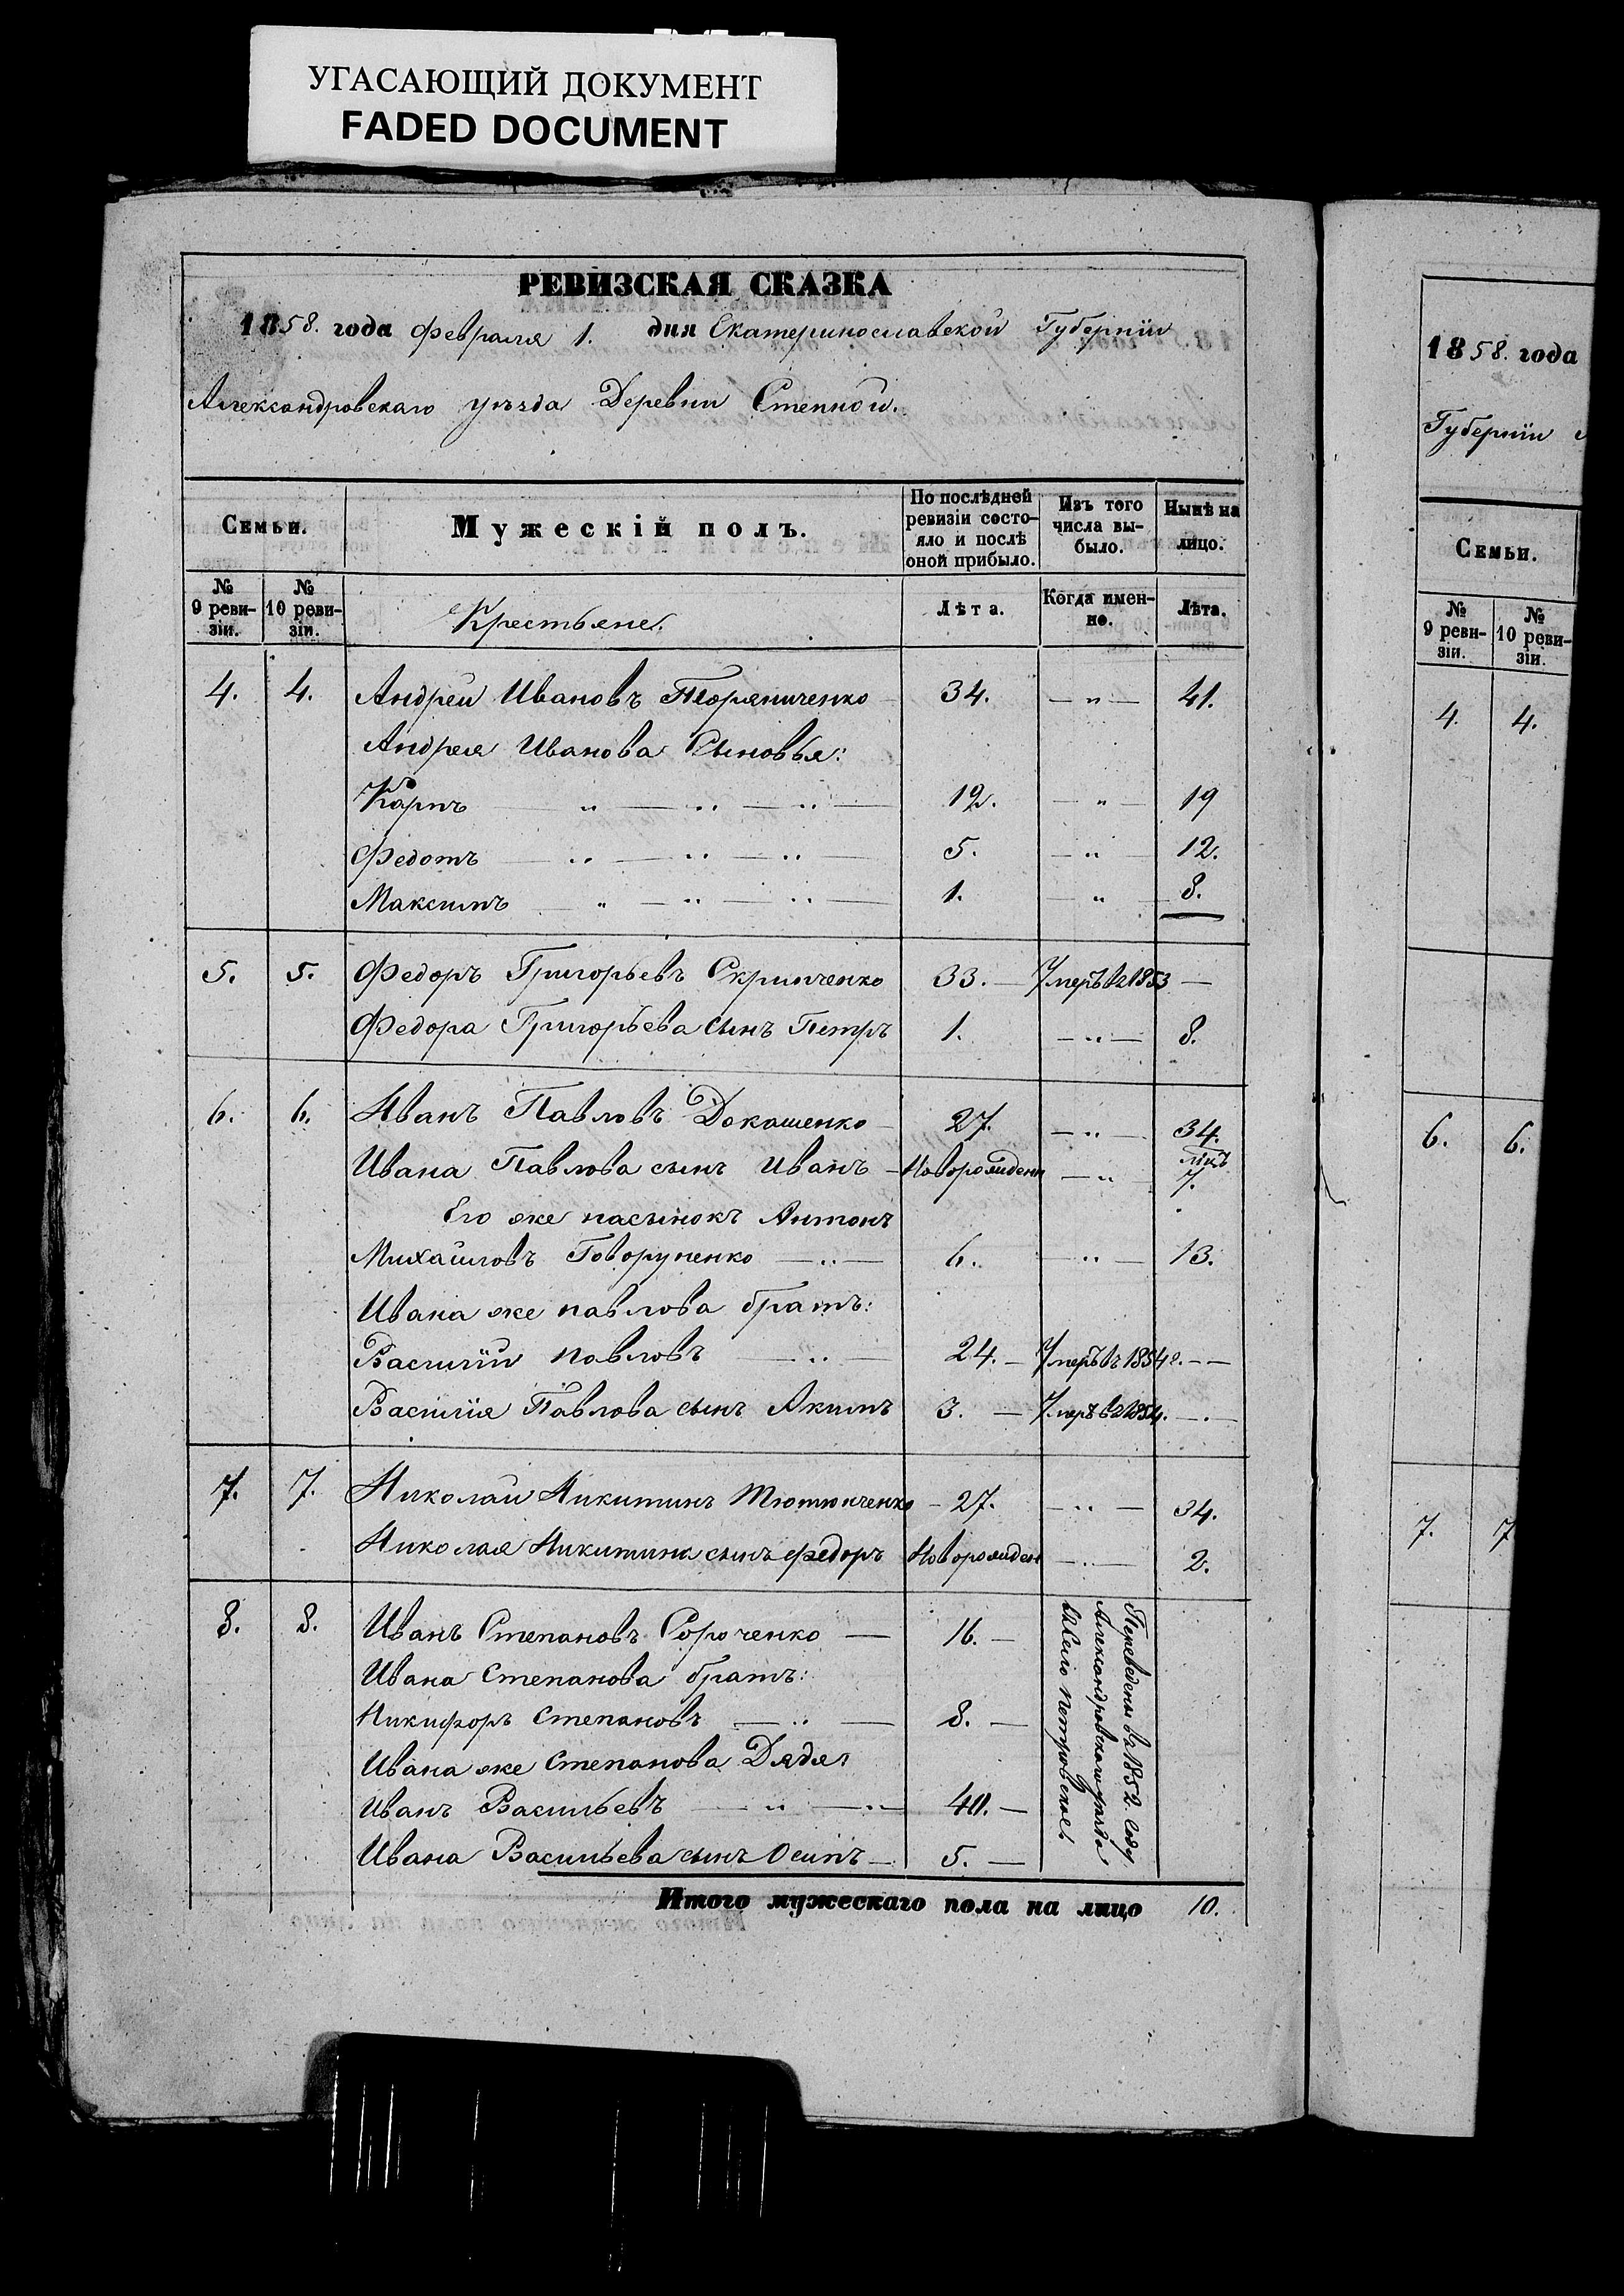 УГАСАЮЩИЙ ДОКУМЕНТ
FADED DOCUMENT
РЕВИЗСКАЯ СКАЗКА
1858. года Февраля 1. дня Екатеринославской Губерніи
Александровскаго уѣзда Деревни Степной.
Семьи. Мужескій полъ. По послѣдней ревизіи состояло и послѣ оной прибыло. Изъ того числа выбыло. Нынѣ на лицо.
№ 9 ревизіи. № 10 ревизіи. Крестьяне. Лѣта. Когда именно. Лѣта.
4. 4. Андрей Ивановъ 34. — " — 41.
Андрея Иванова Сыновья:
Карпъ 12. — " — 19
Федотъ 5. — " — 12.
Максимъ 1. — " — 8.
5. 5. Федоръ Григорьевъ Скрипченко 33. — Умеръ въ 1853 —
Федора Григорьева сынъ Петръ 1. — " — 8.
6. 6. Иванъ Павловъ Докашенко 27. — " — 34.
Ивана Павлова сынъ Иванъ — Новорожденъ — " — мцъ 7.
Его же пасынокъ Антонъ
Михайловъ Говоруненко — " — 6. — " — 13.
Ивана же павлова братъ:
Василій Павловъ — " — 24. — Умеръ въ 1854 г. — —
Василія Павлова сынъ Акимъ 3. — Умеръ въ 1854. — . —
7. 7. Николай Никитинъ Тютюнченко — 27. — " — 34.
Николая Никитина сынъ Федоръ Новорожден — " — 2.
8. 8. Иванъ Степановъ Сороченко — 16. —
Ивана Степанова братъ:
Никифоръ Степановъ — " — 8. —
Ивана же Степанова Дядя
Иванъ Васильевъ — " — " — 40. —
Ивана Васильева сынъ Осипъ — 5. —
Переведены въ 1852. году
Александровскаго уѣзда
въ Село Петровское
Итого мужескаго пола на лицо 10.
1858. года
Губерніи
Семьи.
№ 9 ревизіи. № 10 ревизіи.
4. 4.
6. 6.
7. 7